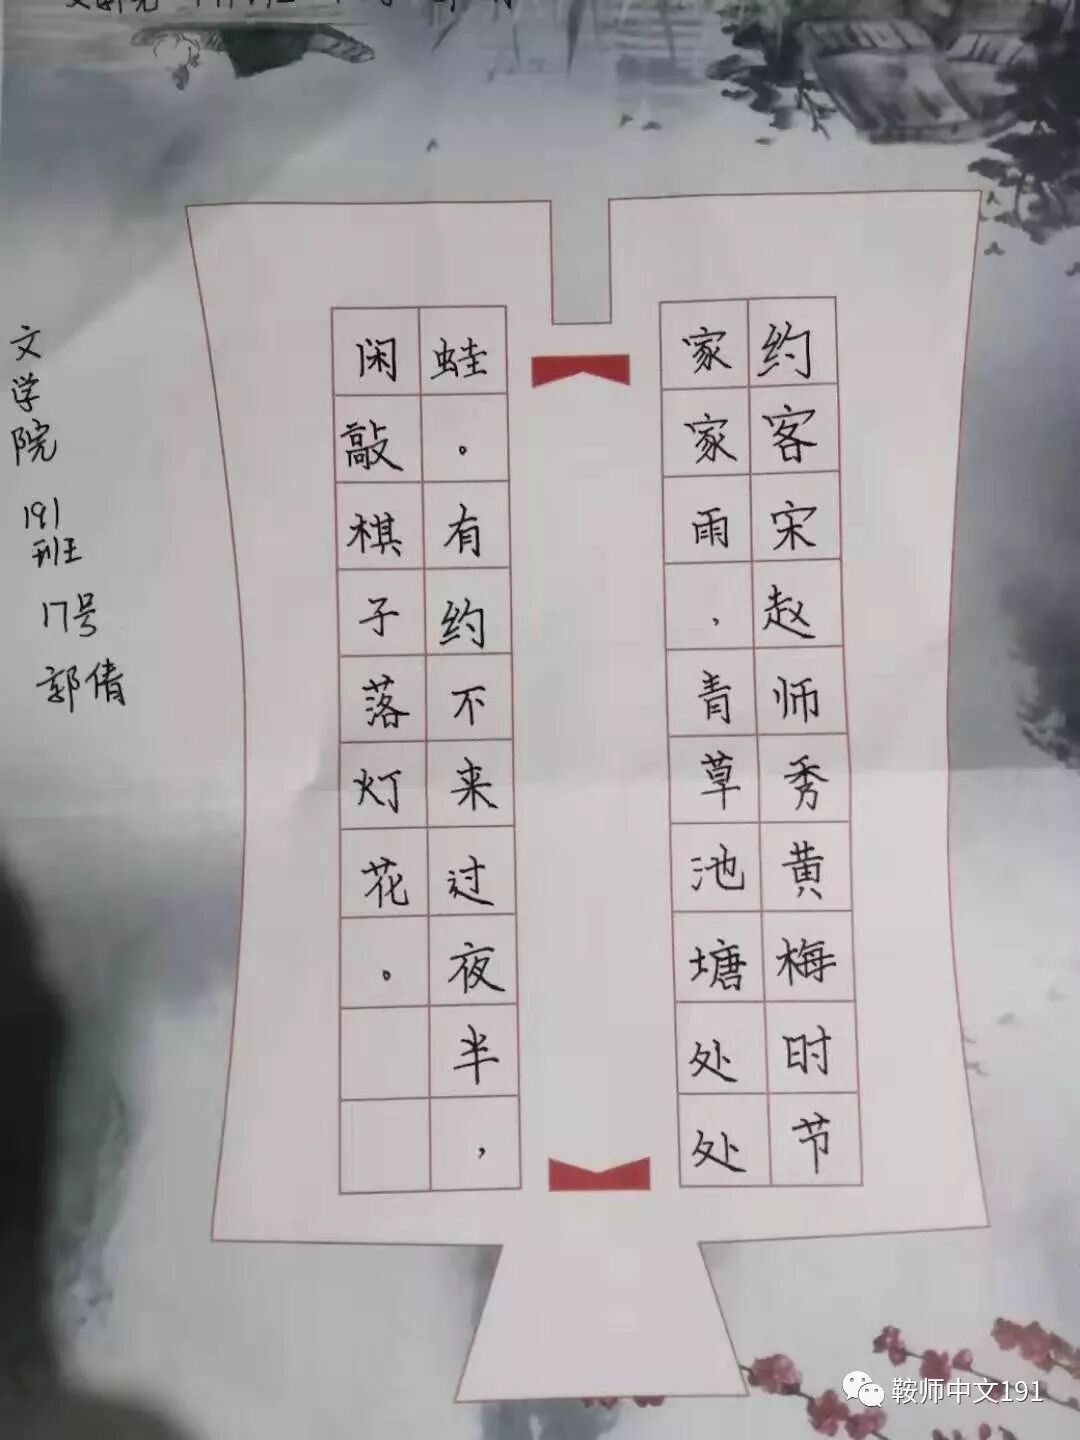 约客宋赵师秀黄梅时节
家家雨，青草池塘处处
蛙。有约不来过夜半，
闲敲棋子落灯花。
文学院
191班
17号
郭倩
鞍师中文191